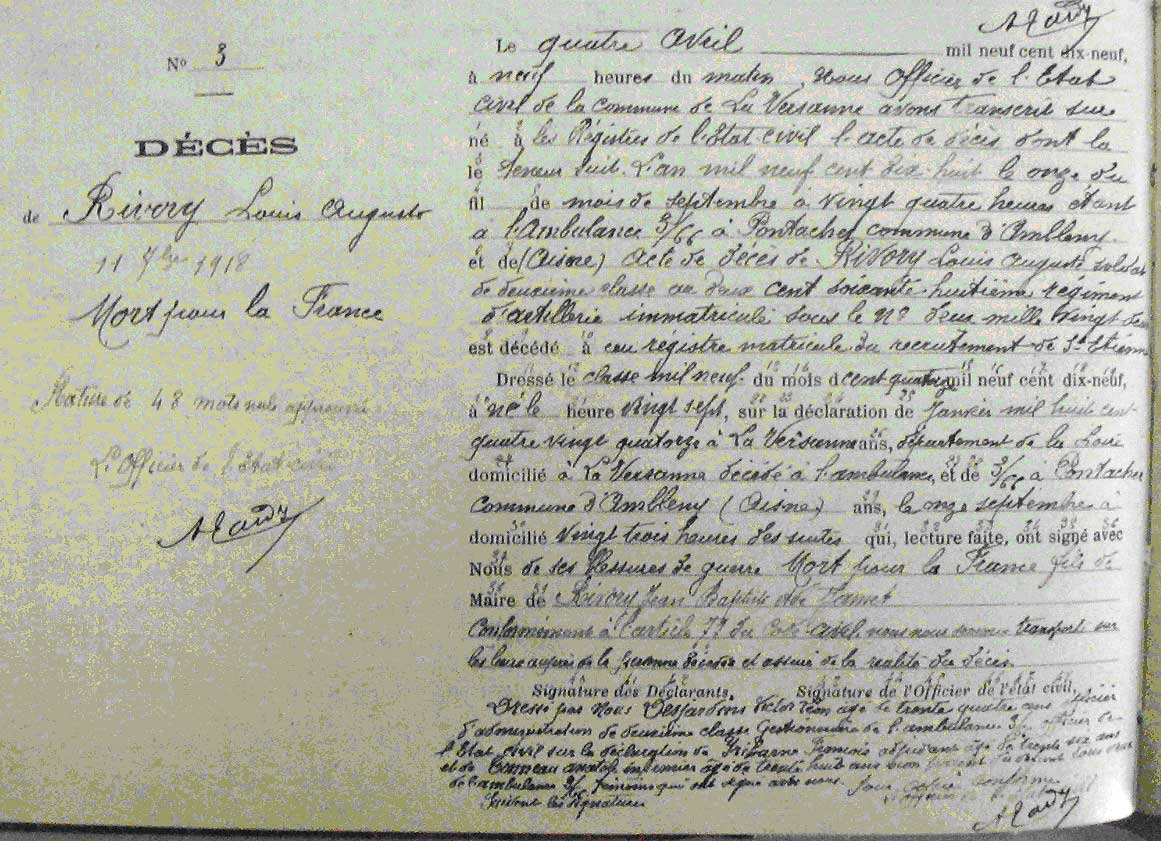 N° 3
DÉCÈS
de Rivory Louis Auguste
11 7bre 1918
Mort pour la France
Rature de 48 mots nuls approuvé
L'Officier de l'Etat civil
Le quatre Avril mil neuf cent dix-neuf,
à neuf heures du matin Nous Officier de l'Etat
civil de la commune de La Versanne avons transcrit sur
né à les Régistres de l'Etat civil l'acte de décès dont la
le teneur suit. L'an mil neuf cent dix huit le onze du
fil de mois de septembre à vingt quatre heures étant
à l'Ambulance 3/66 à Pontacher commune d'Ambleny
et de (Aisne) Acte de décès de RIVORY Louis Auguste soldat
de deuxième classe au deux cent soixante huitième régiment
d'artillerie immatriculé sous le N° deux mille vingt deux
est décédé à au régistre matricule du recrutement de St Etienne
Dressé le classe mil neuf du mois d cent quatorze mil neuf cent dix-neuf,
à né le heure vingt sept, sur la déclaration de Janvier mil huit cent
quatre vingt quatorze à La Versanne ans, département de la Loire
domicilié à La Versanne décédé à l'ambulance, et de 3/66 à Pontacher
Commune d'Ambleny (Aisne) ans, le onze septembre à
domicilié vingt trois heures des suites qui, lecture faite, ont signé avec
Nous de ses blessures de guerre Mort pour la France fils de
Maire de Rivory Jean Baptiste et de
Conformément à l'article 77 du Code civil, nous nous sommes transporté sur
les lieux auprès de la personne décédée et assuré de la réalité du décès
Signature des Déclarants, Signature de l'Officier de l'état civil,
Dressé par Nous Desjardins Victor Léon âgé de trente quatre ans officier
d'administration de deuxième classe Gestionnaire de l'ambulance 3/66 officier de
l'Etat civil sur la déclaration de François âgé de trente six ans
et de Anatole infirmier âgé de trente huit ans
de l'ambulance 3/66 témoins qui ont signé avec nous. Pour copie conforme
Suivent les signatures